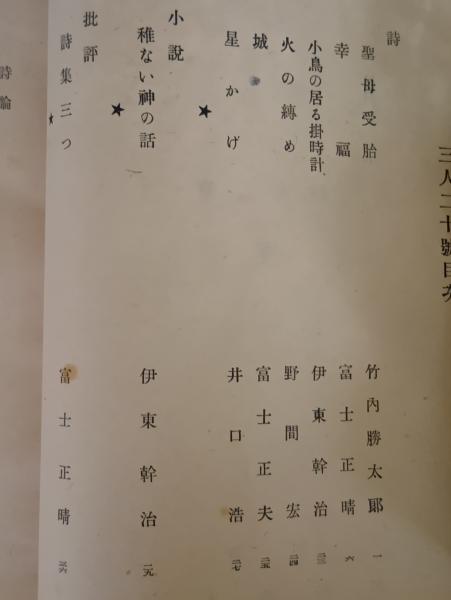 三人二十號目次
詩
聖母受胎 竹內勝太郞 一
幸福 富士正晴 六
小鳥の居る掛時計 伊東幹治 二三
火の縛め 野間宏 二四
城 富士正夫 二五
星かげ 井口浩 二七
★
小說
稚ない神の話 伊東幹治 二九
★
批評
詩集三つ 富士正晴 五六
★
詩論